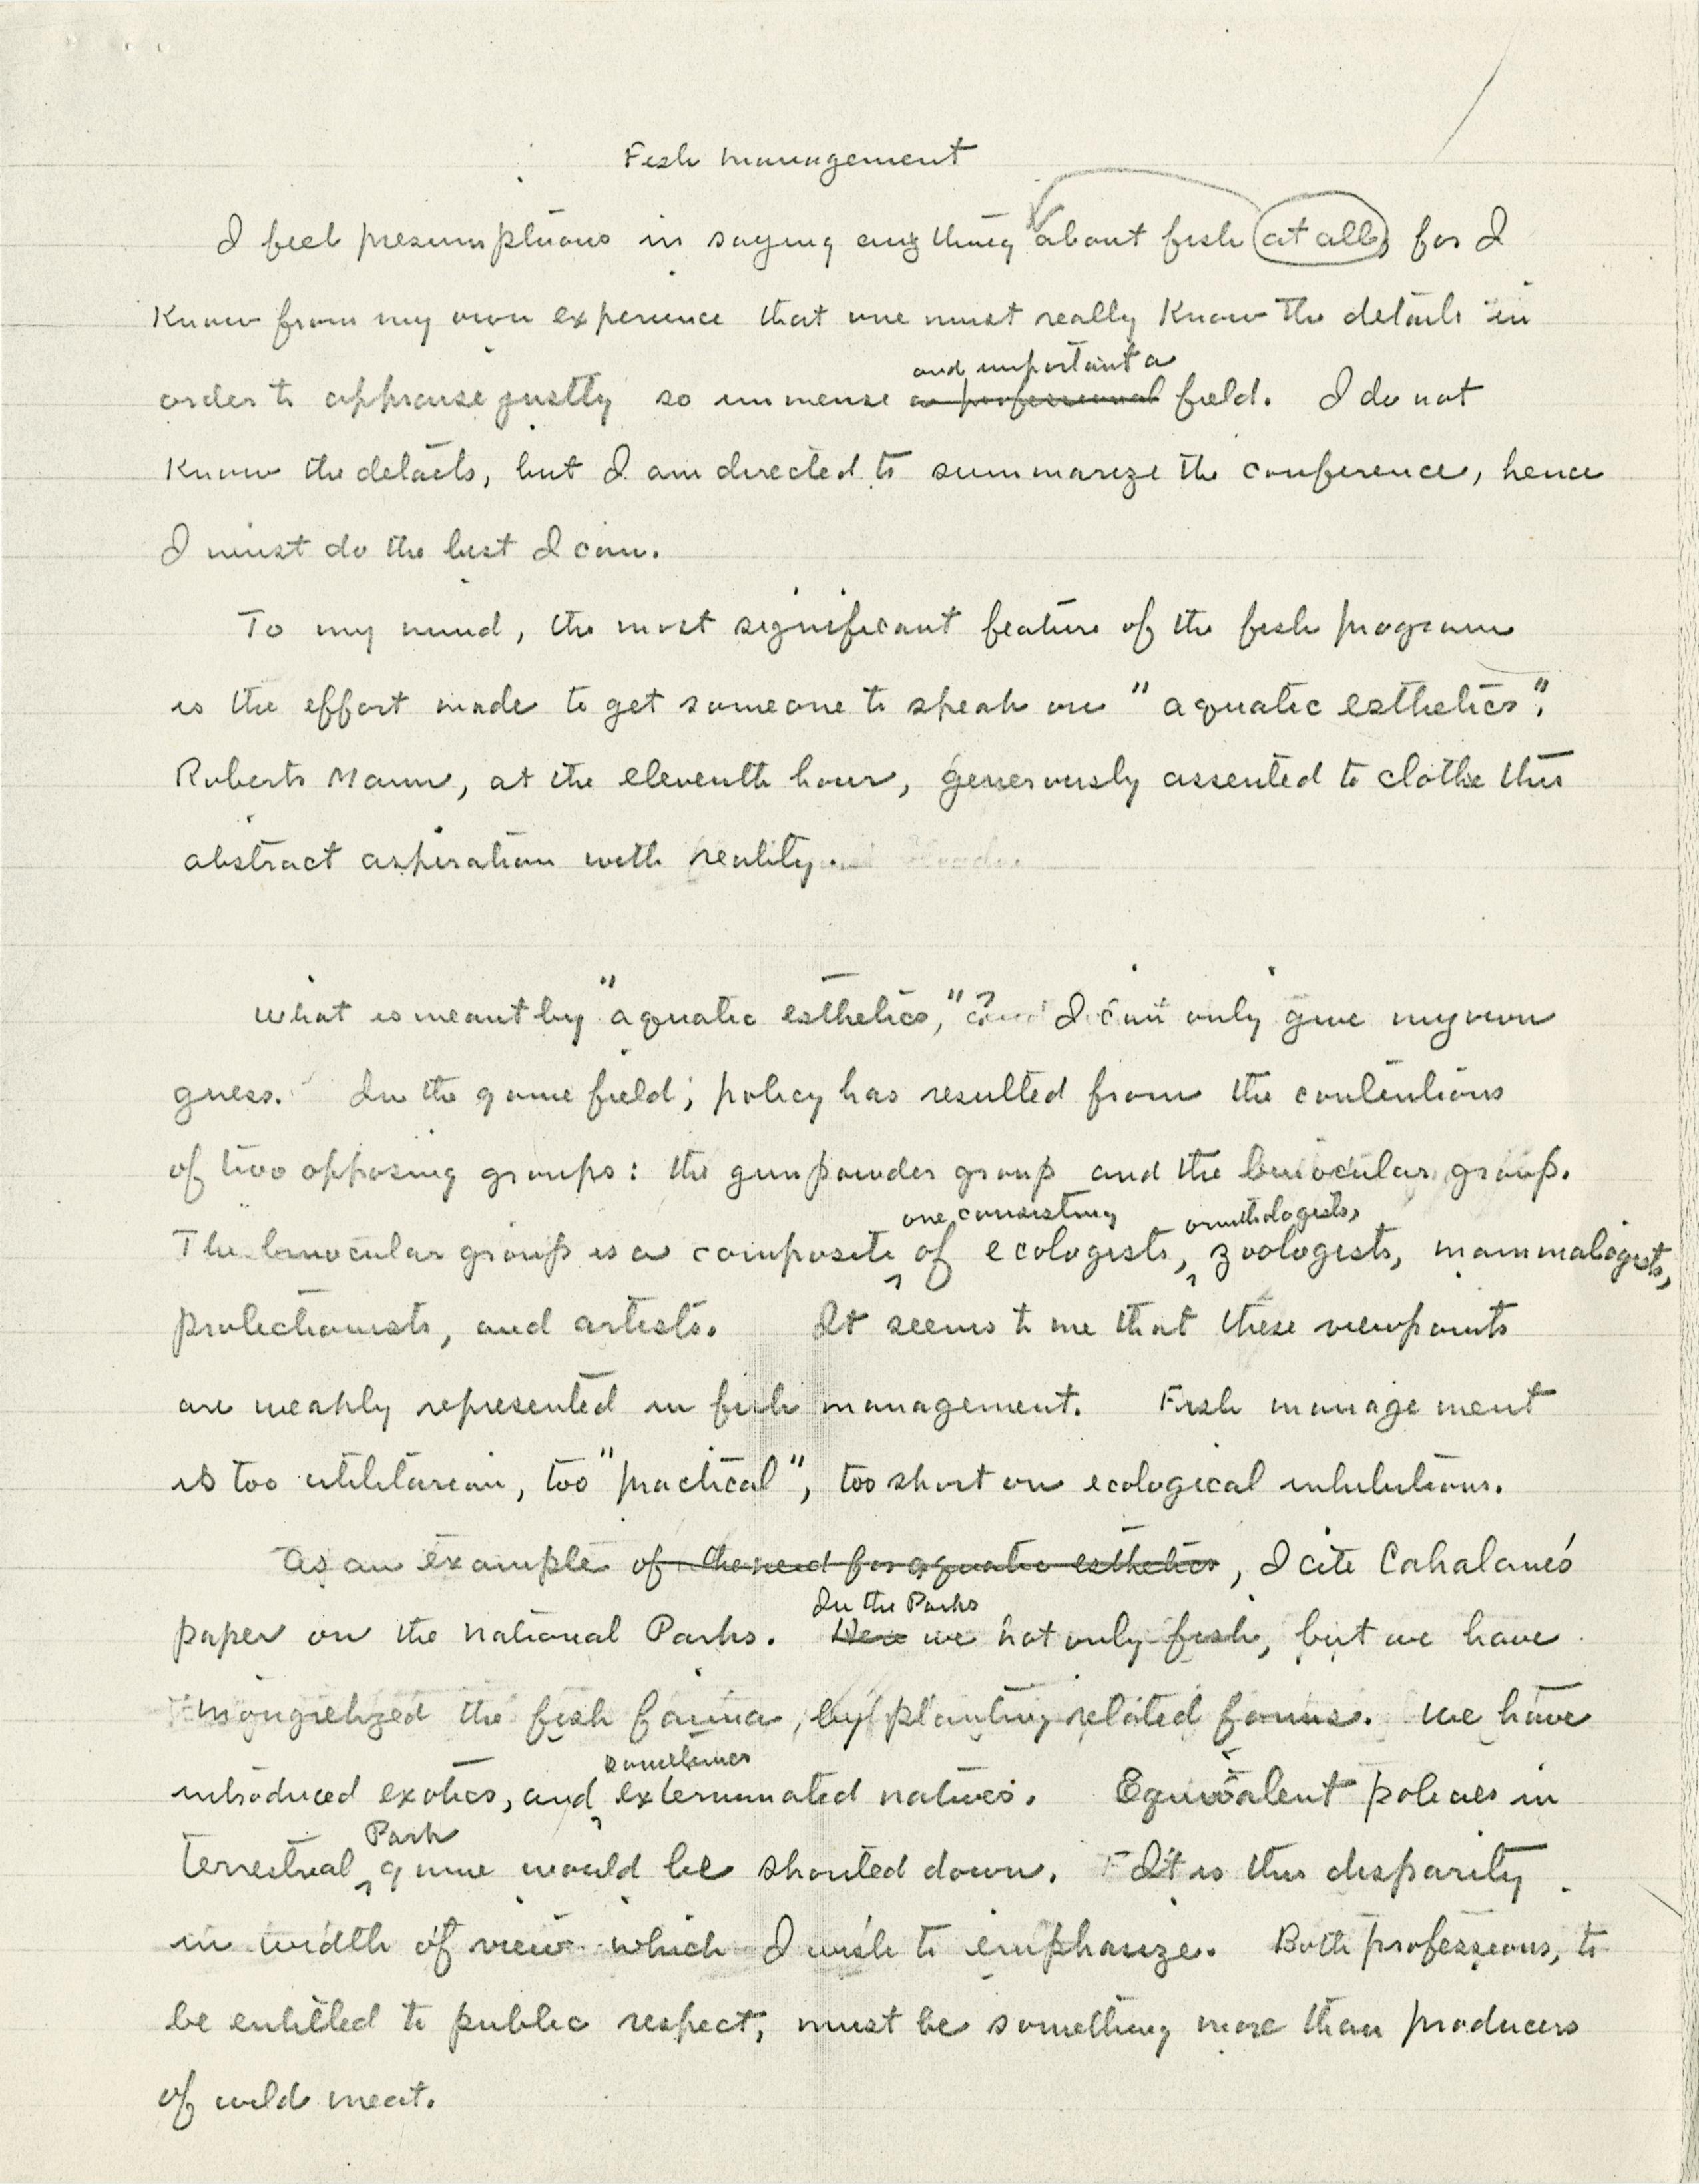 Fish management
I feel presumptuous in saying anything about fish at all, for I
know from my own experience that one must really know the details in
and important a
order to appraise justly so immense a professional field. I do not
know the details, but I am directed to summarize the conference, hence
I must do the best I can.
To my mind, the most significant feature of the fish program
is the effort made to get someone to speak on "aquatic esthetics".
Roberts Mann, at the eleventh hour, generously assented to clothe this
abstract aspiration with reality.
What is meant by "aquatic esthetics," ? I can only give my own
guess. In the game field, policy has resulted from the contentions
of two opposing groups: the gunpowder group and the binocular group.
one consisting ornithologists,
The binocular group is a composite of ecologists, zoologists, mammalogists,
protectionists, and artists. It seems to me that these viewpoints
are weakly represented in fish management. Fish management
is too utilitarian, too "practical", too short on ecological inhibitions.
As an example of the need for aquatic esthetics, I cite Cahalane's
In the Parks
paper on the National Parks. Here we not only fish, but we have
mongrelized the fish fauna, by planting related forms. We have
sometimes
introduced exotics, and exterminated natives. Equivalent policies in
Park
terrestrial game would be shouted down. It is this disparity
in width of view which I wish to emphasize. Both professions, to
be entitled to public respect, must be something more than producers
of wild meat.